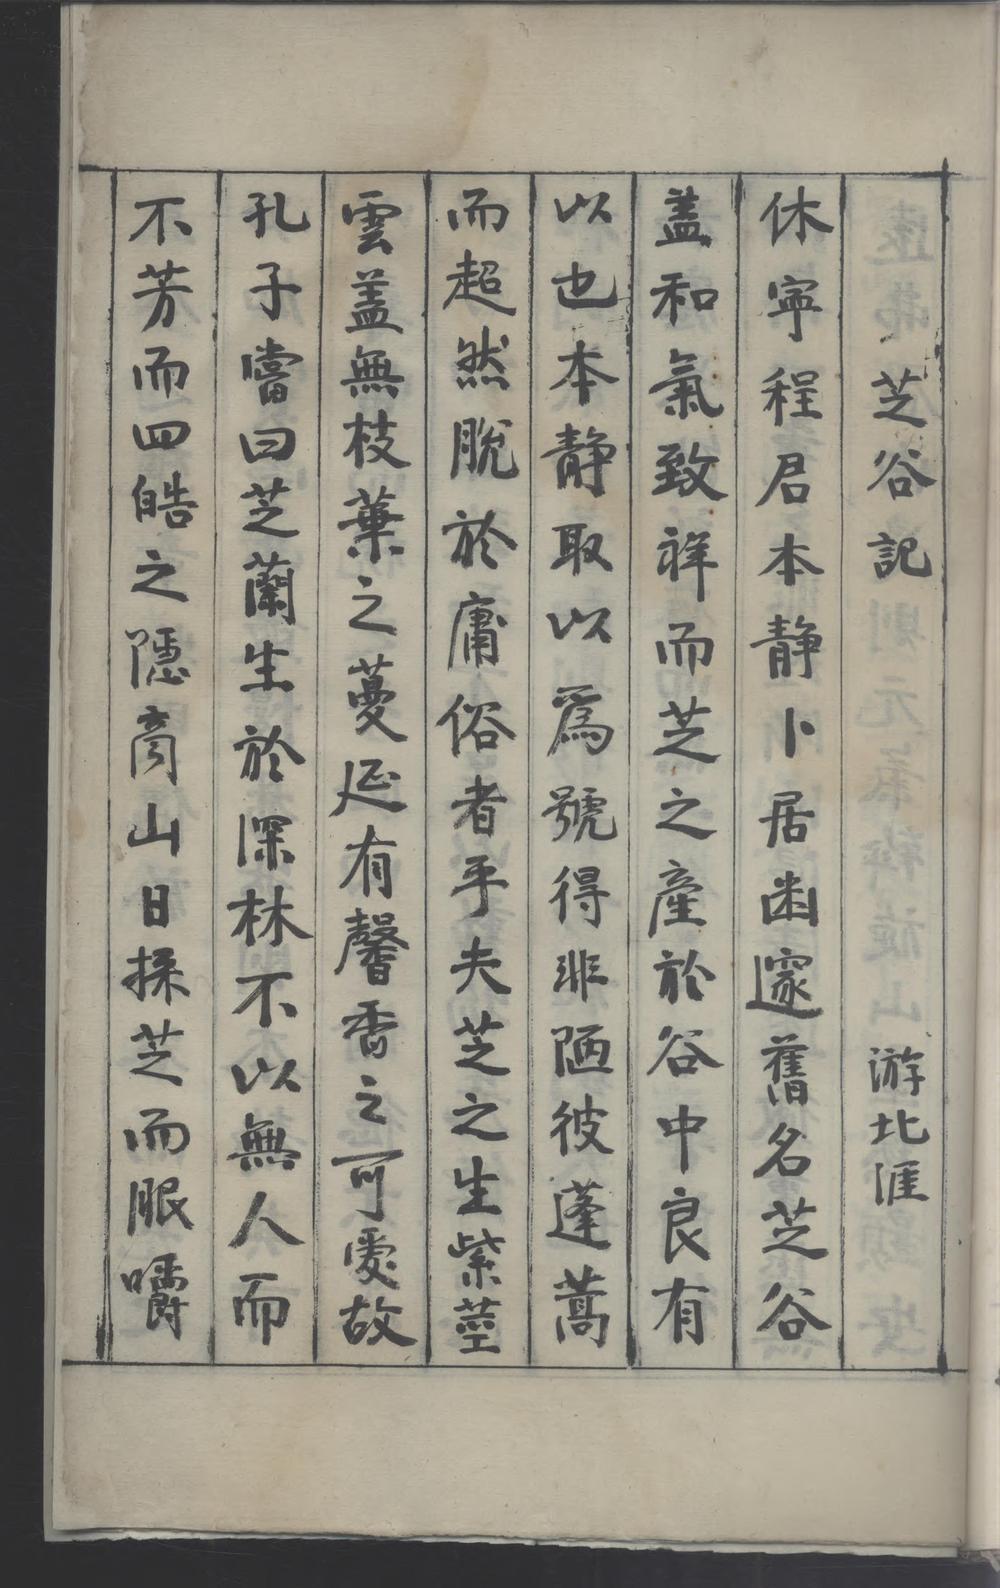 芝谷記 游北涯
休寧程君本静卜居幽邃舊名芝谷
盖和氣致祥而芝之產於谷中良有
以也本静取以爲號得非陋彼蓬蒿
而超然脫於庸俗者乎夫芝之生紫莖
雲盖無枝葉之蔓延有馨香之可愛故
孔子嘗曰芝蘭生於深林不以無人而
不芳而四皓之隱商山日採芝而服嚼